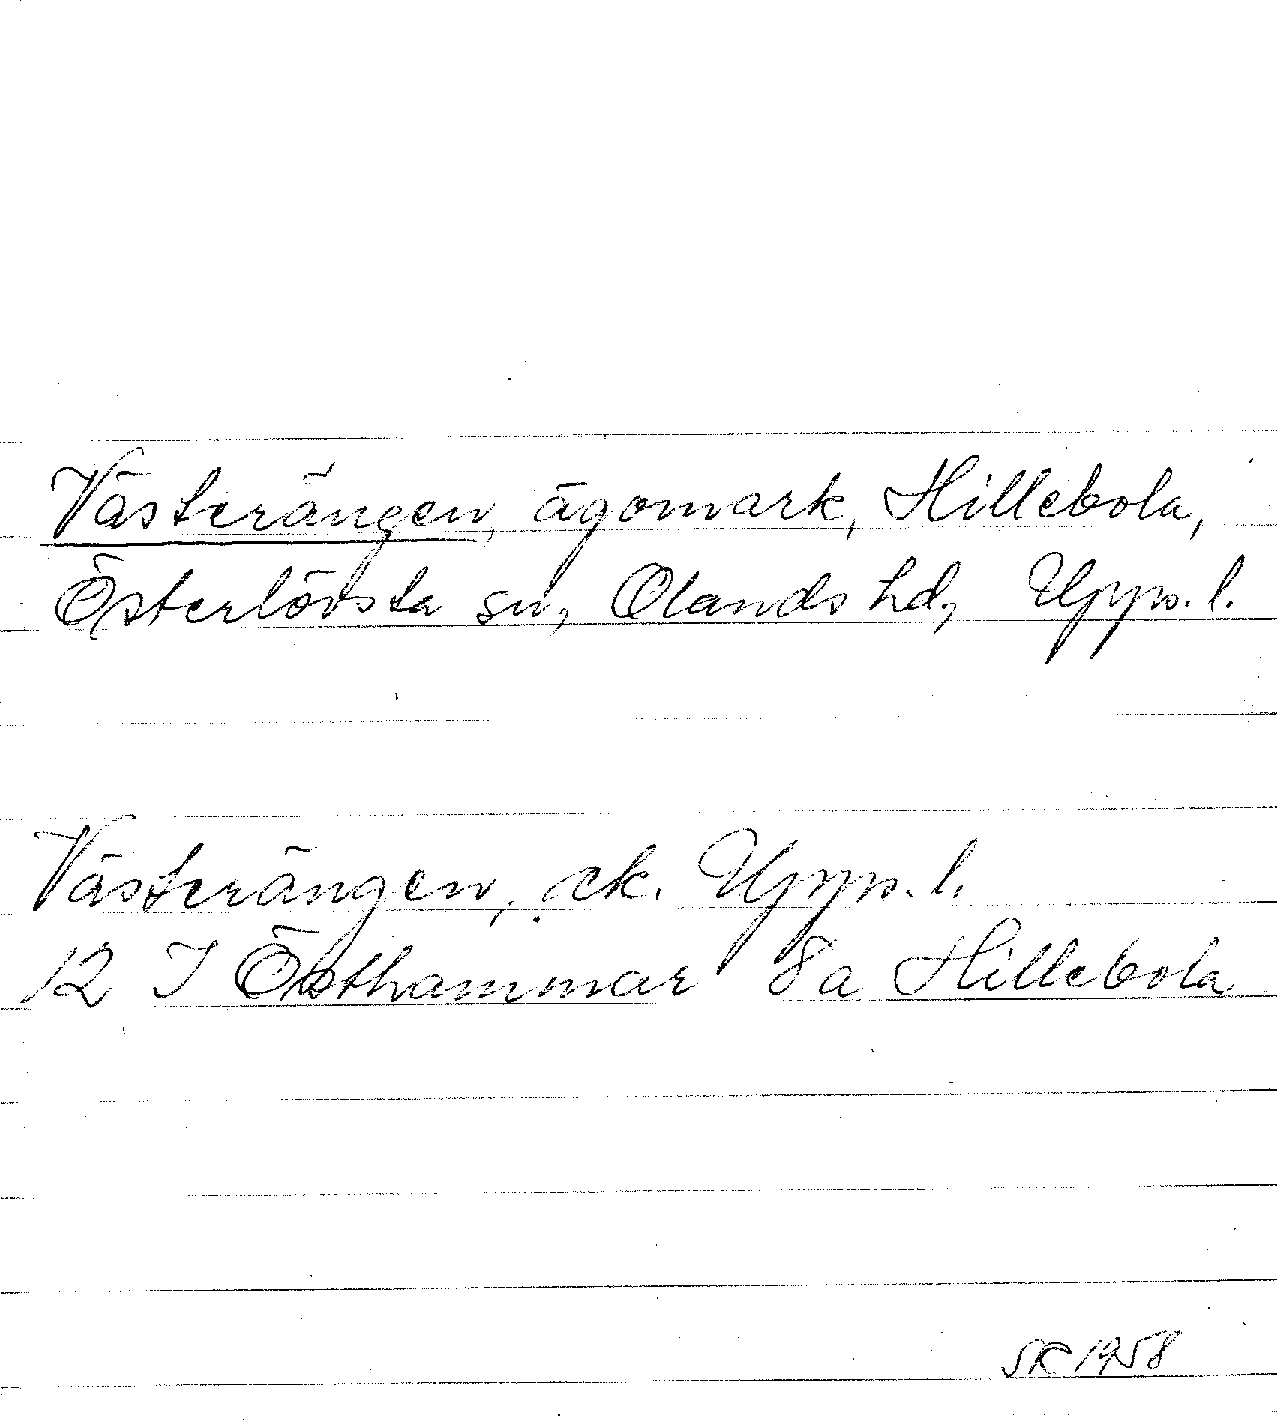 Västerängen, ägomark, Hillebola,
Österlövsta sn, Olands hd, Upps. l.
Västerängen, ek. Upps. l.
12 I Östhammar 8a Hillebola
SK 1958